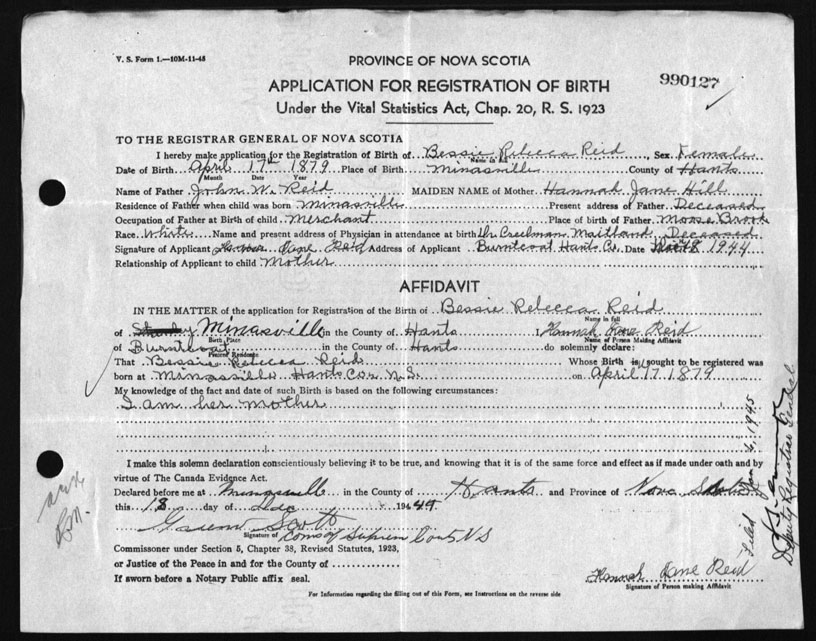 V. S. Form 1.—10M-11-45
PROVINCE OF NOVA SCOTIA
990127
APPLICATION FOR REGISTRATION OF BIRTH
Under the Vital Statistics Act, Chap. 20, R. S. 1923
TO THE REGISTRAR GENERAL OF NOVA SCOTIA
I hereby make application for the Registration of Birth of Bessie Rebecca Reid, Sex Female
Name in full
Date of Birth April 17th 1879 Place of Birth Minasville County of Hants
Month Date Year
Name of Father John W. Reid MAIDEN NAME of Mother Hannah Jane Hill
Residence of Father when child was born Minasville Present address of Father Deceased
Occupation of Father at Birth of child Merchant Place of birth of Father Moose Brook
Race White Name and present address of Physician in attendance at birth Dr Creelman Maitland Deceased
Signature of Applicant Hannah Jane Reid Address of Applicant Burntcoat Hants Co. Date 1944
Relationship of Applicant to child Mother
AFFIDAVIT
IN THE MATTER of the application for Registration of the Birth of Bessie Rebecca Reid
Name in full
of Minasville in the County of Hants I, Hannah Jane Reid
Birth Place Name of Person Making Affidavit
of Burntcoat in the County of Hants do solemnly declare:
Present Residence
That Bessie Rebecca Reid Whose Birth is sought to be registered was
born at Minasville Hants Co. N.S. on April 17 1879
My knowledge of the fact and date of such Birth is based on the following circumstances:
I am her mother
I make this solemn declaration conscientiously believing it to be true, and knowing that it is of the same force and effect as if made under oath and by
virtue of The Canada Evidence Act.
Declared before me at Minasville in the County of Hants and Province of Nova Scotia
this 18 day of Dec 194
Scott
Signature of Coms of Supreme Court NS
Commissioner under Section 5, Chapter 38, Revised Statutes, 1923,
or Justice of the Peace in and for the County of
If sworn before a Notary Public affix seal.
Hannah Jane Reid
Signature of Person making Affidavit
For Information regarding the filling out of this Form, see Instructions on the reverse side
Filed 1945
Deputy Registrar General